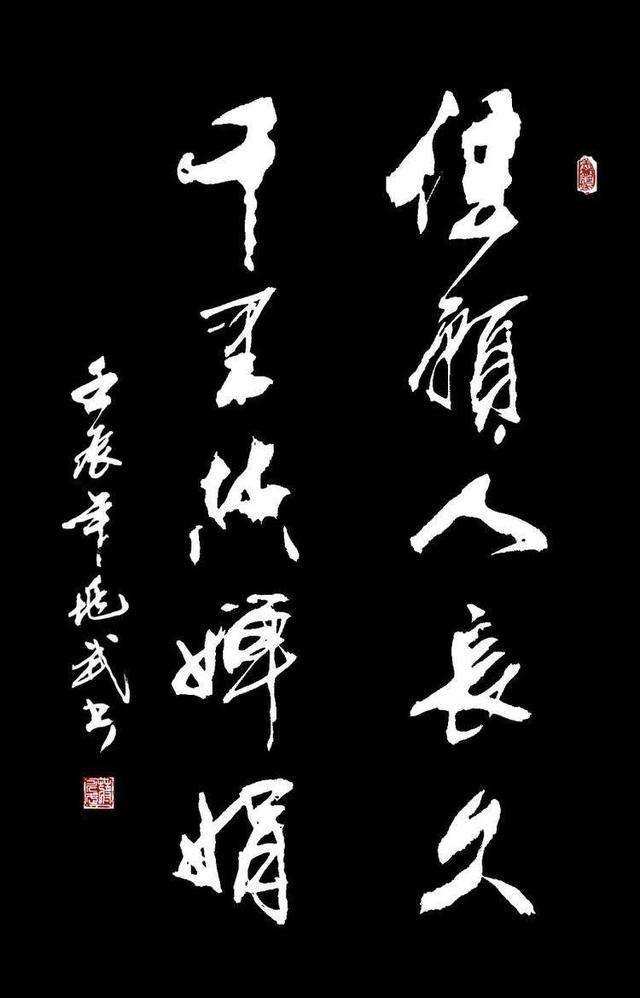 但願人長久
千里共嬋娟
壬辰年武书